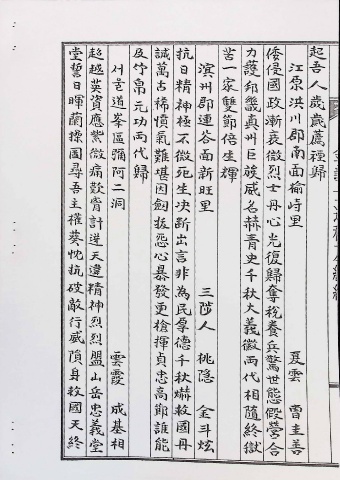 起吾人歲歲薦禋歸
江原洪川郡南面楡峙里 夏雲 曺圭善
倭侵國政漸衰微烈士丹心光復歸奪稅養兵驚世態假營合
力護邦畿眞州巨族威名赫靑史千秋大義徽兩代相隨終獄
苦一家雙節倍生輝
溟州郡連谷面新旺里 三陟人 桃隱 金斗炫
抗日精神極不微死生决斷出言非為民享德千秋赫救國丹
誠萬古稀憤氣難堪因劍拔怨心暴發更槍揮貞忠高節誰能
及竹帛元功兩代歸
서울道峯區彌阿二洞 雲霞 成基相
超越英資應紫微痛歎胥計逆天違精神烈烈盟山岳忠義堂
堂誓日暉蘭操圖尋吾主權葵忱抗破敵行威隕身救國天終